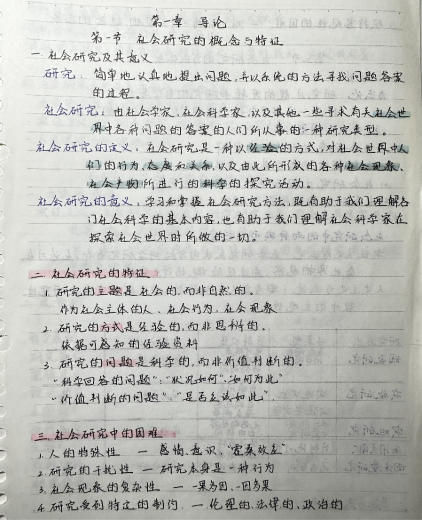 第一章 导论
第一节 社会研究的概念与特征
一 社会研究及其意义
研究：简单地、认真地提出问题，并以系统的方法寻找问题答案
的过程。
社会研究：由社会学家、社会科学家、以及其他一些寻求有关社会世
界中各种问题的答案的人们所从事的一种研究类型。
社会研究的定义：社会研究是一种以经验的方式，对社会世界中人
们的行为、态度和关系，以及由此所形成的各种社会现象、
社会产物所进行的科学的探究活动。
社会研究的意义：学习和掌握社会研究方法，既有助于我们理解各
门社会科学的基本内容，也有助于我们理解社会科学家在
探索社会世界时所做的一切。
二 社会研究的特征
1. 研究的主题是社会的，而非自然的。
作为社会主体的人、社会行为、社会现象
2. 研究的方式是经验的，而非思辨的。
依据可感知的经验资料
3. 研究的问题是科学的，而非价值判断的。
“科学回答的问题”：“状况如何”、“如何为此”
“价值判断的问题”：“是否应该如此”.
三 社会研究中的困难
1. 人的特殊性 — 感情、意识，“霍桑效应”
2. 研究的干扰性 — 研究本身是一种行为
3. 社会现象的复杂性 — 一果多因、一因多果
4. 研究受到特定的制约 — 伦理的、法律的、政治的